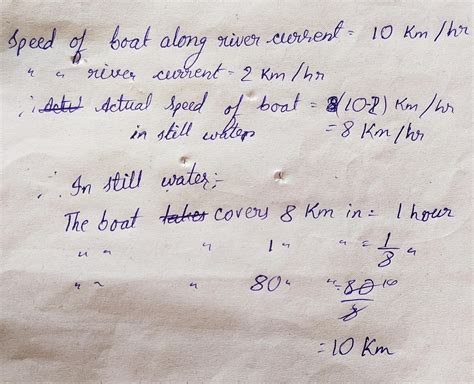 Speed of boat along river current = 10 Km/hr
" " river current = 2 Km/hr
∴ Actual Speed of boat = (10-2) Km/hr
in still water = 8 Km/hr
∴ In still water;-
The boat takes covers 8 Km in = 1 hour
" " " 1 " " = 1/8 "
" " " 80 " " = 80/8 10
= 10 Km